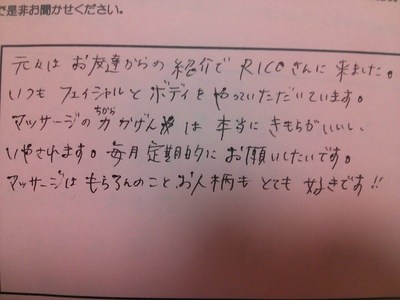 で是非お聞かせください。
元々は お友達からの 紹介で RICOさんに 来ました。
いつも フェイシャルと ボディを やっていただいています。
ちから
マッサージの力かげん は 本当に きもちがいいし、
いやされます。毎月 定期的に お願いしたいです。
マッサージは もちろんのこと お人柄も とても 好きです!!